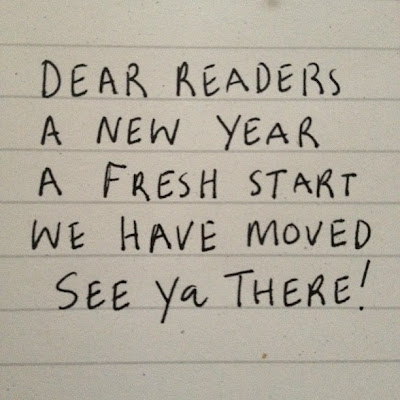 DEAR READERS
A NEW YEAR
A FRESH START
WE HAVE MOVED
SEE Ya THERE!